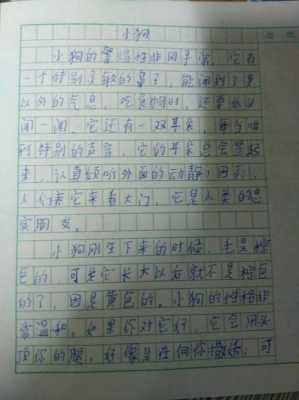 小狗
小狗的警惕性非同寻常,它有
一个特别灵敏的鼻子,能闻到了
以外的气息,吃食物时,还要
闻一闻,它还有一双耳朵,每当听
到特别的声音,它的耳朵总会竖起
来,认真倾听外面的动静,因此,
人们养它来看大门,它是人类的忠
实朋友。
小狗刚生下来的时候,全是棕
色的,可是它长大以后就不是棕色
的了,因是黄色的。小狗的性格非
常温和,如果你对它好,它会用头
顶你的腿,好像是在向你撒娇,可